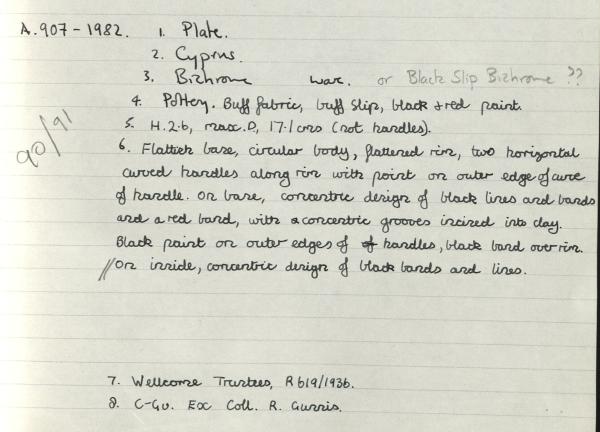 A.907-1982. 1. Plate.
2. Cyprus.
3. Bichrome ware. or Black Slip Bichrome ??
90/91
4. Pottery. Buff fabric, buff slip, black & red paint.
5. H. 2.6, max. D, 17.1 cms (not handles).
6. Flattish base, circular body, flattened rim, two horizontal
curved handles along rim with point on outer edge of curve
of handle. On base, concentric design of black lines and bands
and a red band, with concentric grooves incized into clay.
Black paint on outer edges of handles, black band over rim.
// On inside, concentric design of black bands and lines.
7. Wellcome Trustees, R 619/1936.
8. C-Gu. Exc Coll. R. Gunnis.